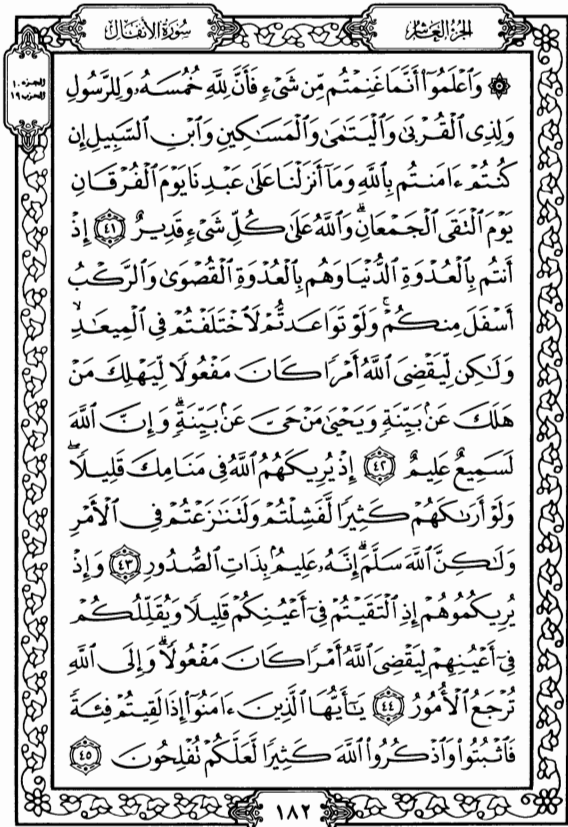 سُورَةُ الأَنفَالِ
الجُزءُ العَاشِرُ
الجزء ١٠
الحزب ١٩
۞ وَٱعْلَمُوٓا۟ أَنَّمَا غَنِمْتُم مِّن شَىْءٍ فَأَنَّ لِلَّهِ خُمُسَهُۥ وَلِلرَّسُولِ
وَلِذِى ٱلْقُرْبَىٰ وَٱلْيَتَـٰمَىٰ وَٱلْمَسَـٰكِينِ وَٱبْنِ ٱلسَّبِيلِ إِن
كُنتُمْ ءَامَنتُم بِٱللَّهِ وَمَآ أَنزَلْنَا عَلَىٰ عَبْدِنَا يَوْمَ ٱلْفُرْقَانِ
يَوْمَ ٱلْتَقَى ٱلْجَمْعَانِ ۗ وَٱللَّهُ عَلَىٰ كُلِّ شَىْءٍ قَدِيرٌ ٤١ إِذْ
أَنتُم بِٱلْعُدْوَةِ ٱلدُّنْيَا وَهُم بِٱلْعُدْوَةِ ٱلْقُصْوَىٰ وَٱلرَّكْبُ
أَسْفَلَ مِنكُمْ ۚ وَلَوْ تَوَاعَدتُّمْ لَٱخْتَلَفْتُمْ فِى ٱلْمِيعَـٰدِ ۙ
وَلَـٰكِن لِّيَقْضِىَ ٱللَّهُ أَمْرًا كَانَ مَفْعُولًا لِّيَهْلِكَ مَنْ
هَلَكَ عَنۢ بَيِّنَةٍ وَيَحْيَىٰ مَنْ حَىَّ عَنۢ بَيِّنَةٍ ۗ وَإِنَّ ٱللَّهَ
لَسَمِيعٌ عَلِيمٌ ٤٢ إِذْ يُرِيكَهُمُ ٱللَّهُ فِى مَنَامِكَ قَلِيلًا ۖ
وَلَوْ أَرَىٰكَهُمْ كَثِيرًا لَّفَشِلْتُمْ وَلَتَنَـٰزَعْتُمْ فِى ٱلْأَمْرِ
وَلَـٰكِنَّ ٱللَّهَ سَلَّمَ ۗ إِنَّهُۥ عَلِيمٌۢ بِذَاتِ ٱلصُّدُورِ ٤٣ وَإِذْ
يُرِيكُمُوهُمْ إِذِ ٱلْتَقَيْتُمْ فِىٓ أَعْيُنِكُمْ قَلِيلًا وَيُقَلِّلُكُمْ
فِىٓ أَعْيُنِهِمْ لِيَقْضِىَ ٱللَّهُ أَمْرًا كَانَ مَفْعُولًا ۗ وَإِلَى ٱللَّهِ
تُرْجَعُ ٱلْأُمُورُ ٤٤ يَـٰٓأَيُّهَا ٱلَّذِينَ ءَامَنُوٓا۟ إِذَا لَقِيتُمْ فِئَةً
فَٱثْبُتُوا۟ وَٱذْكُرُوا۟ ٱللَّهَ كَثِيرًا لَّعَلَّكُمْ تُفْلِحُونَ ٤٥
١٨٢